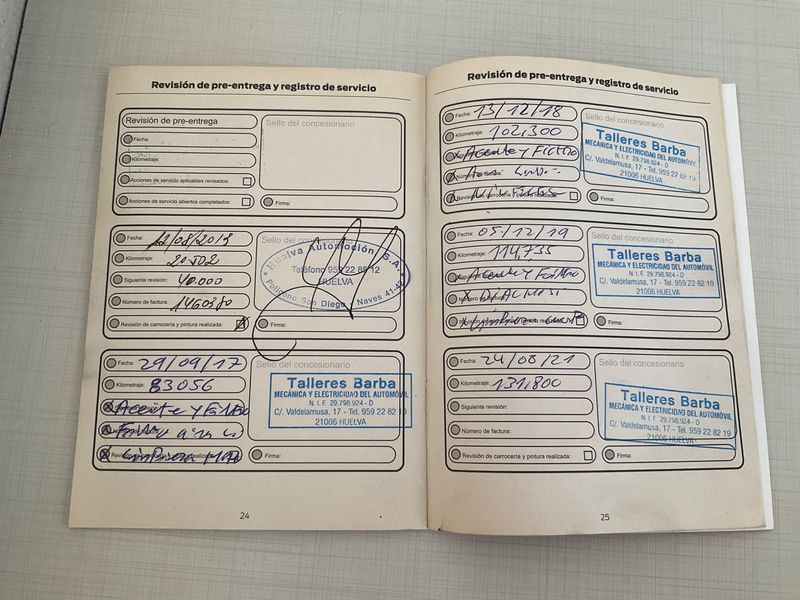 Revisión de pre-entrega y registro de servicio
Revisión de pre-entrega
Fecha:
Kilometraje:
Acciones de servicio aplicables revisados:
Acciones de servicio abiertos completados:
Sello del concesionario
Firma:
Fecha: 12/08/2013
Kilometraje: 20502
Siguiente revisión: 40.000
Número de factura:
Revisión de carrocería y pintura realizada:
Sello del concesionario
Huelva Automoción S.A.
Teléfono 959 22 88 12
HUELVA
Polígono San Diego Naves 41-42
Firma:
Fecha: 29/09/17
Kilometraje: 83056
Aceite y Filtro
Sello del concesionario
Talleres Barba
MECÁNICA Y ELECTRICIDAD DEL AUTOMÓVIL
N. I. F. 29.798.924 - D
C/. Valdelamusa, 17 - Tel. 959 22 82 19
21006 HUELVA
Firma:
24
Revisión de pre-entrega y registro de servicio
Fecha: 13/12/18
Kilometraje: 102,300
Aceite y Filtro
Sello del concesionario
Talleres Barba
MECÁNICA Y ELECTRICIDAD DEL AUTOMÓVIL
N. I. F. 29.798.924 - D
C/. Valdelamusa, 17 - Tel. 959 22 82 19
21006 HUELVA
Firma:
Fecha: 05/12/19
Kilometraje: 114,735
Aceite y Filtro
Sello del concesionario
Talleres Barba
MECÁNICA Y ELECTRICIDAD DEL AUTOMÓVIL
N. I. F. 29.798.924 - D
C/. Valdelamusa, 17 - Tel. 959 22 82 19
21006 HUELVA
Firma:
Fecha: 24/08/21
Kilometraje: 131,800
Siguiente revisión:
Número de factura:
Revisión de carrocería y pintura realizada:
Sello del concesionario
Talleres Barba
MECÁNICA Y ELECTRICIDAD DEL AUTOMÓVIL
N. I. F. 29.798.924 - D
C/. Valdelamusa, 17 - Tel. 959 22 82 19
21006 HUELVA
Firma:
25